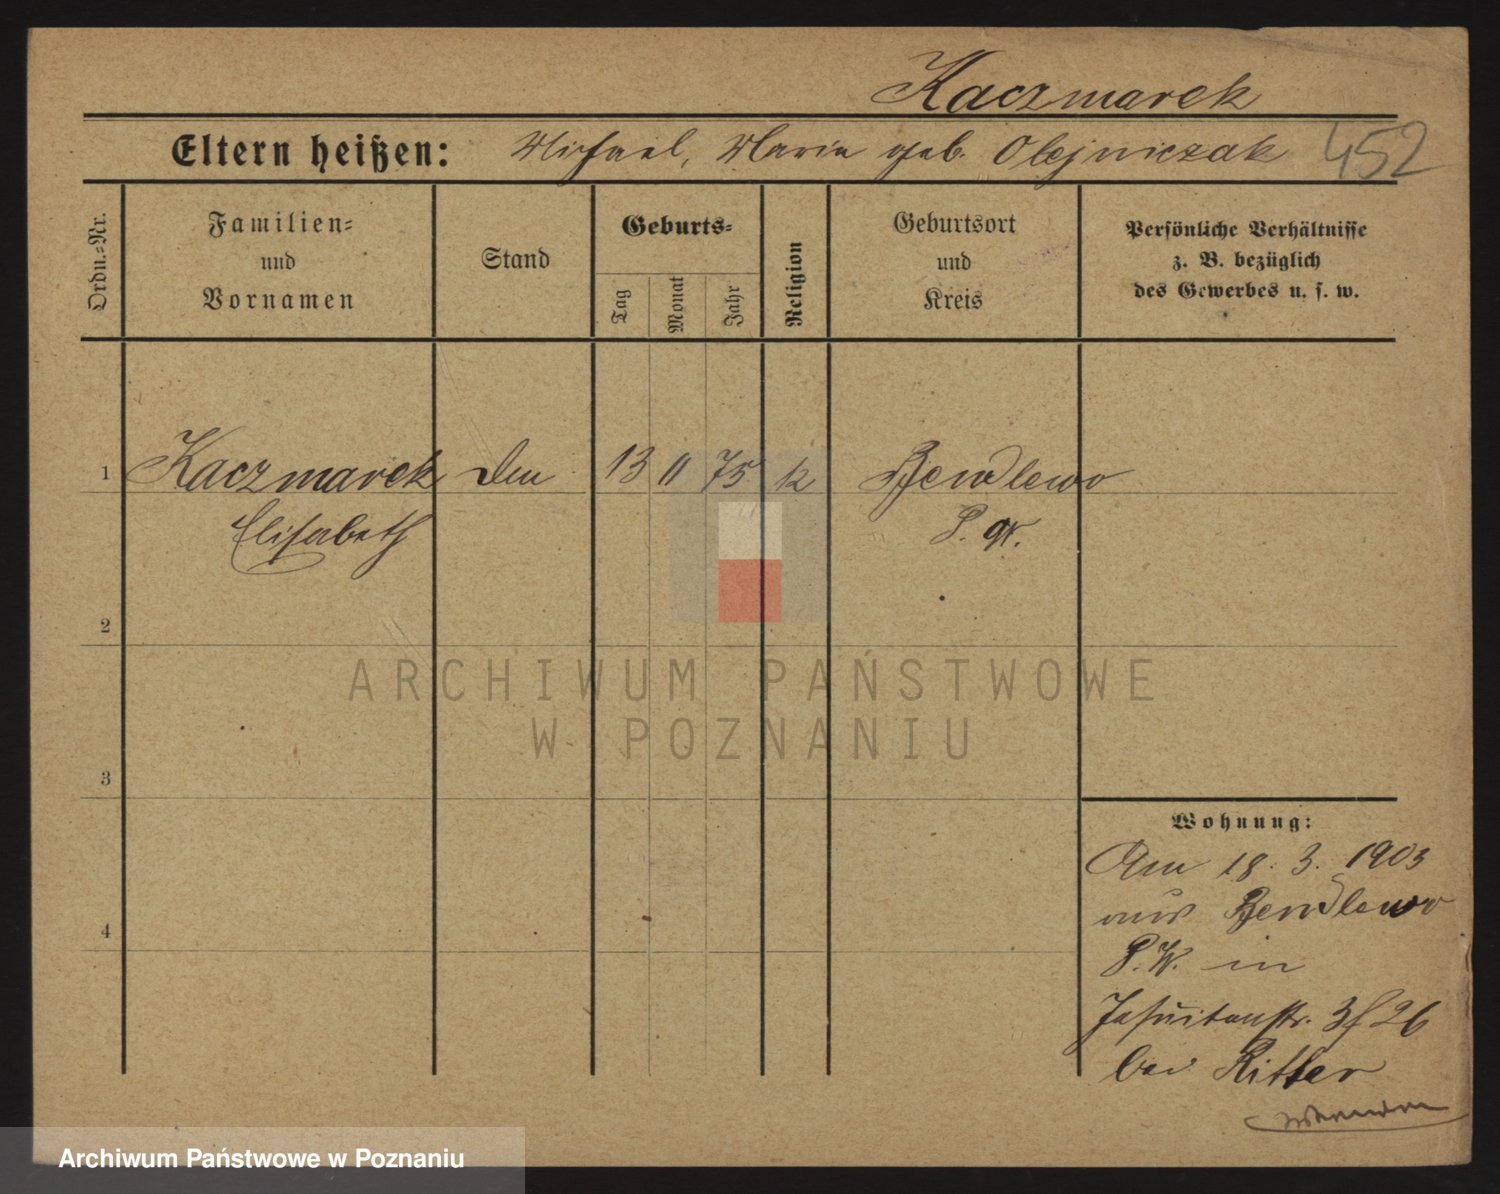 Kaczmarek
Eltern heißen: Michael, Maria geb. Olejniczak 452
Ordn.=Nr.
Familien=
und
Vornamen
Stand
Geburts=
Tag
Monat
Jahr
Religion
Geburtsort
und
Kreis
Persönliche Verhältnisse
z. B. bezüglich
des Gewerbes u. s. w.
1 Kaczmarek 13 11 75 k Bendlewo
Elisabeth
2
3
4
Wohnung:
Am 18. 3. 1903
aus Bendlewo
P. W. in
Jesuitenstr. 3 f 26
bei Ritter
wenden
ARCHIWUM PAŃSTWOWE
W POZNANIU
Archiwum Państwowe w Poznaniu